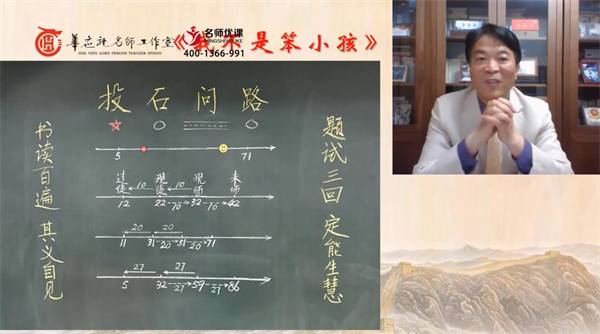 华应龙名师工作室
HUA YING LONG FAMOUS TEACHER STUDIO
名师优课
400-1366-991
《我不是笨小孩》
投石问路
书读百遍 其义自见
5 71
过徒 10 现徒 10 现师 未师
12 22 10 32 10 42
20 20
11 31 20 51 20 71
27 27
5 32 27 59 27 86
题试三回 定能生慧